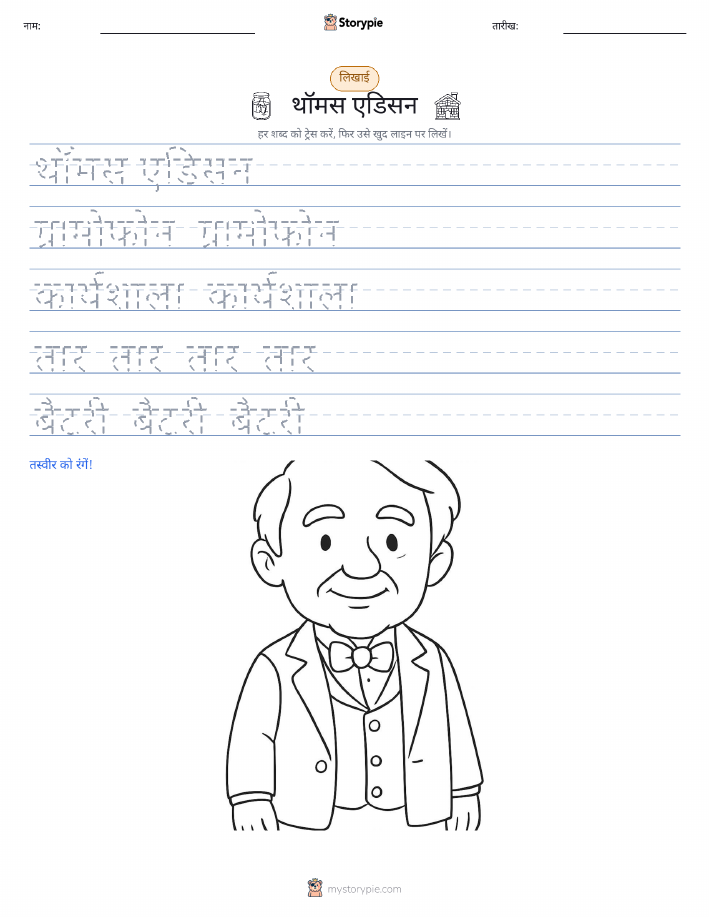 नाम:
Storypie
तारीख:
लिखाई
थॉमस एडिसन
हर शब्द को ट्रेस करें, फिर उसे खुद लाइन पर लिखें।
थॉमस एडिसन
ग्रामोफोन ग्रामोफोन
कार्यशाला कार्यशाला
तार तार तार तार
बैटरी बैटरी बैटरी
तस्वीर को रंगें!
mystorypie.com